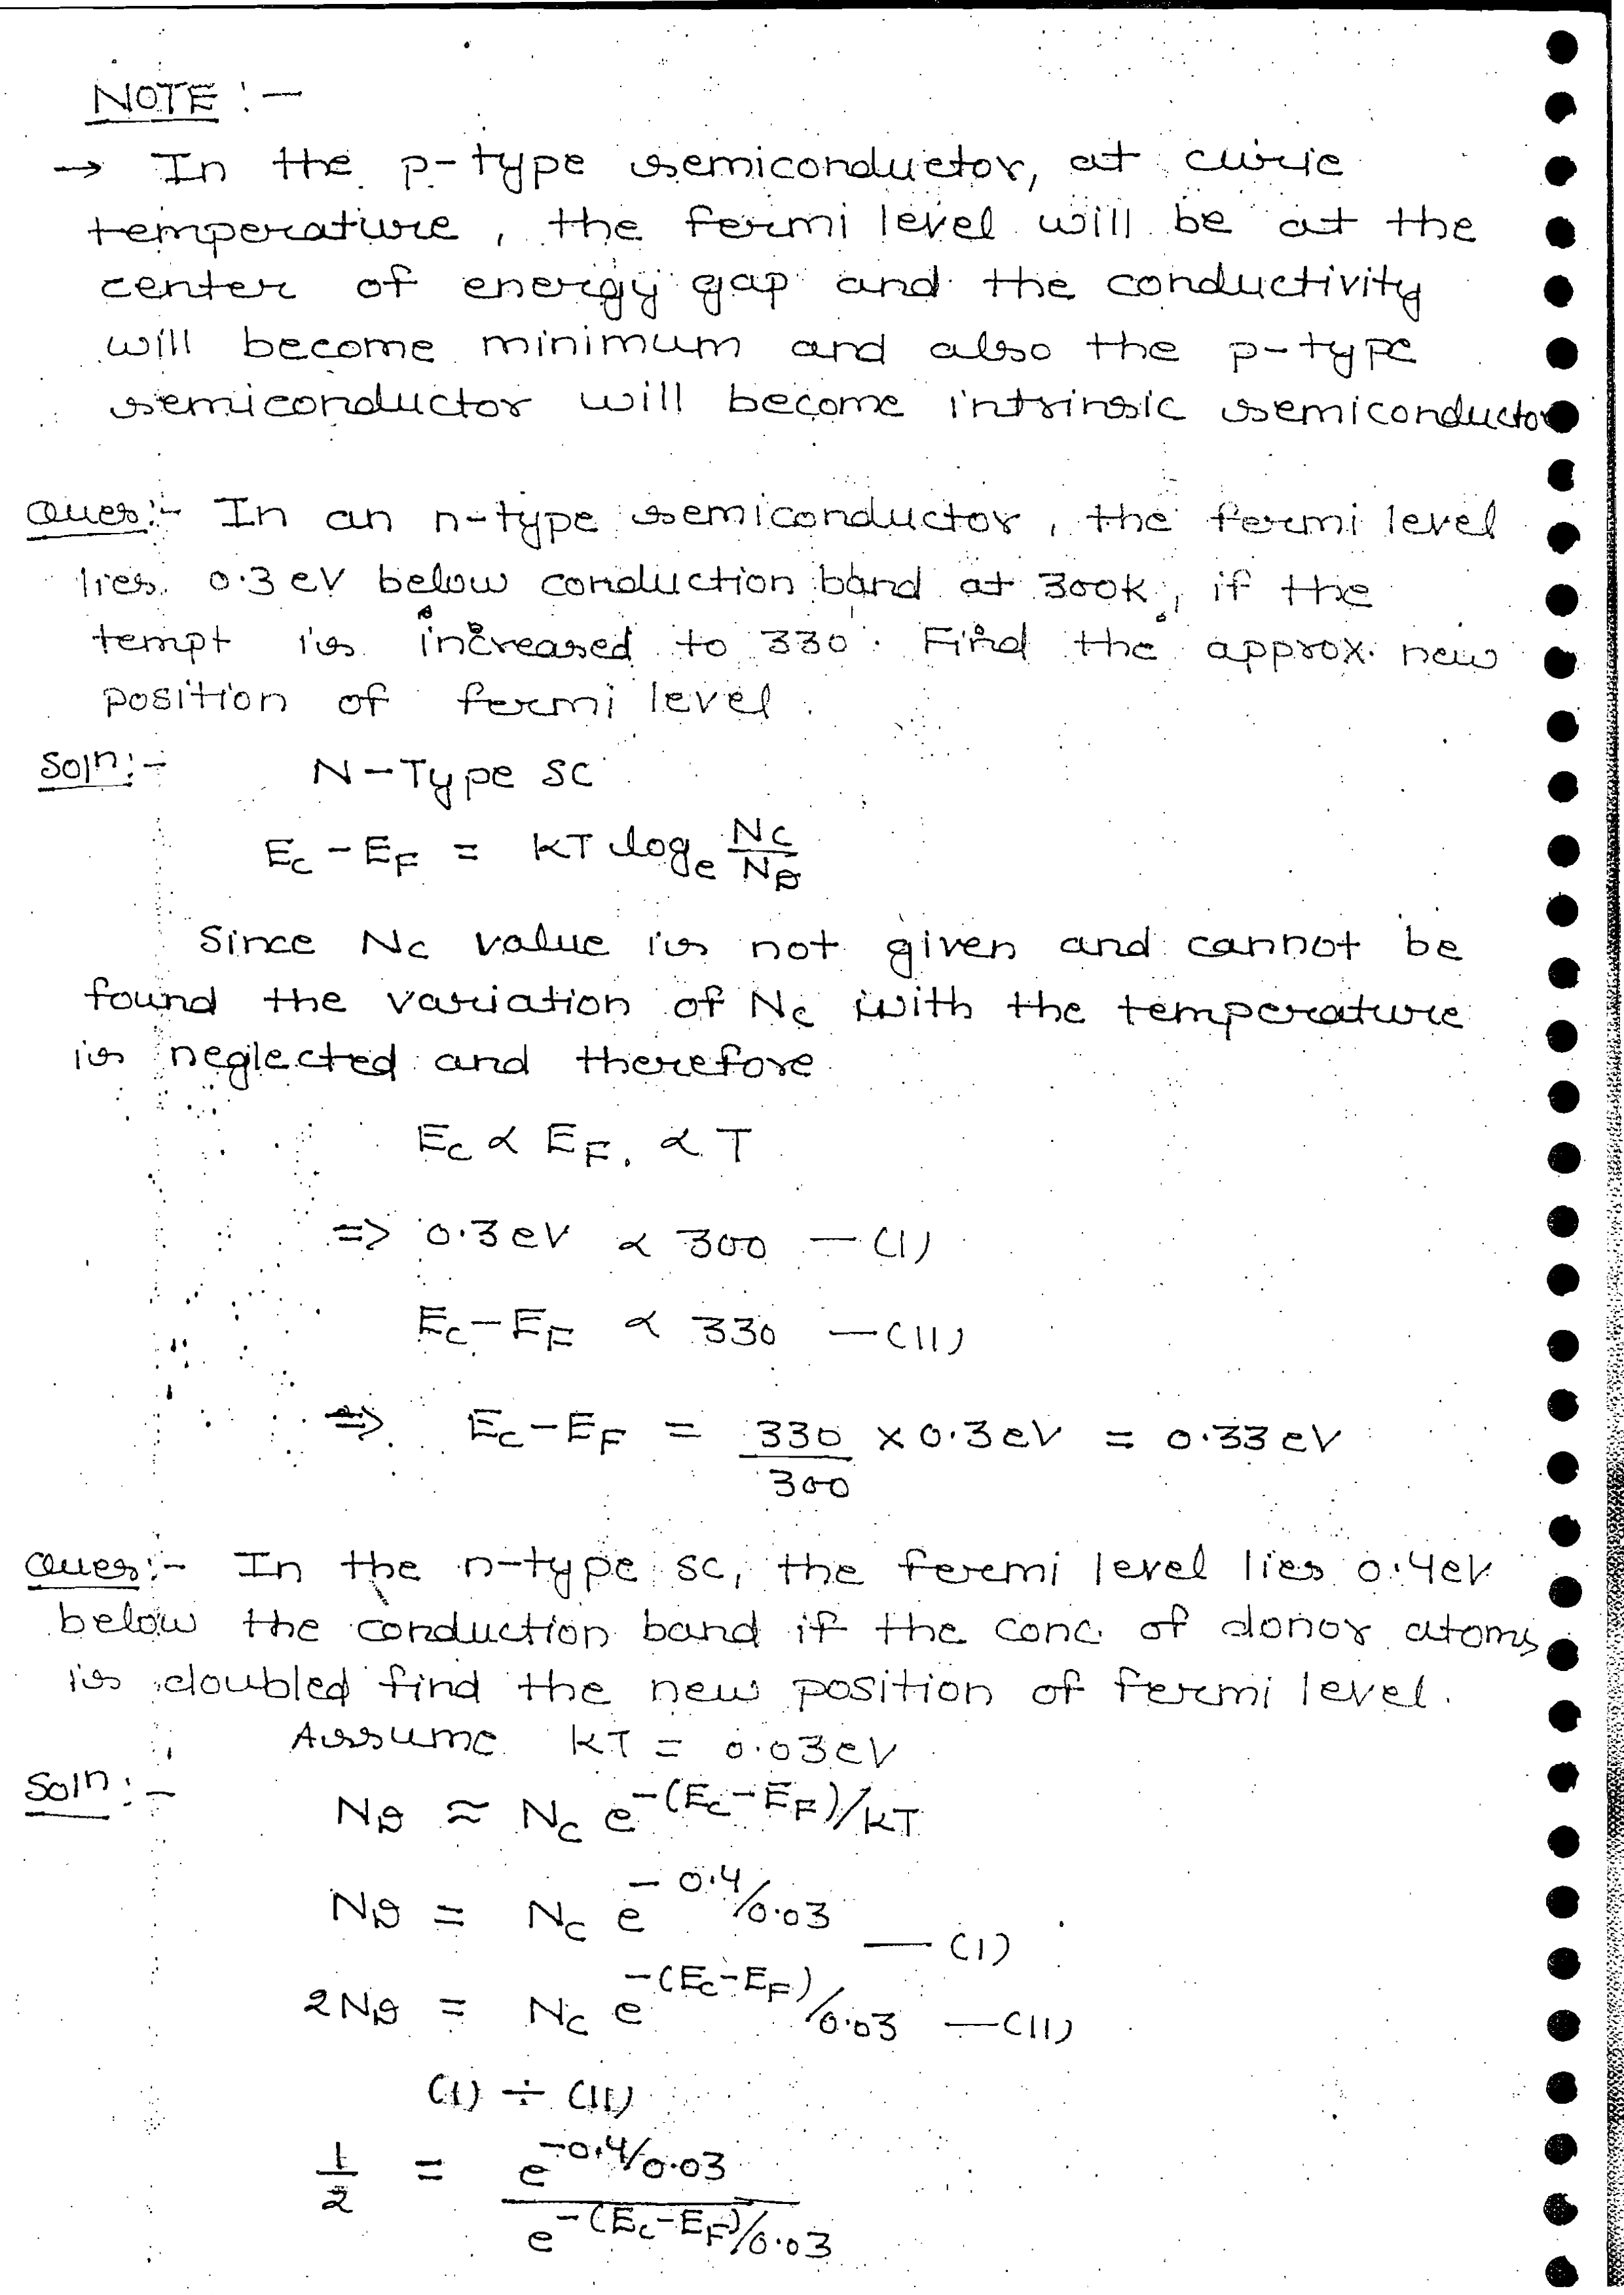 NOTE :-
→ In the p-type semiconductor, at curie
temperature, the fermi level will be at the
center of energy gap and the conductivity
will become minimum and also the p-type
semiconductor will become intrinsic semiconductor
Ques:- In an n-type semiconductor, the fermi level
lies 0.3 eV below conduction band at 300K, if the
tempt is increased to 330. Find the approx. new
position of fermi level.
Soln:- N-Type SC
E_C - E_F = KT log_e N_C/N_D
Since N_C value is not given and cannot be
found the variation of N_C with the temperature
is neglected and therefore
E_C ∝ E_F. ∝ T
=> 0.3 eV ∝ 300 — (I)
E_C - E_F ∝ 330 — (II)
=> E_C - E_F = 330/300 × 0.3 eV = 0.33 eV
Ques:- In the n-type SC, the fermi level lies 0.4eV
below the conduction band if the conc. of donor atoms
is doubled find the new position of fermi level.
Assume KT = 0.03 eV
Soln:- N_D ≈ N_C e^-(E_C-E_F)/KT
N_D = N_C e^-0.4/0.03 — (I)
2N_D = N_C e^-(E_C-E_F)/0.03 — (II)
(I) ÷ (II)
1/2 = e^-0.4/0.03 / e^-(E_C-E_F)/0.03